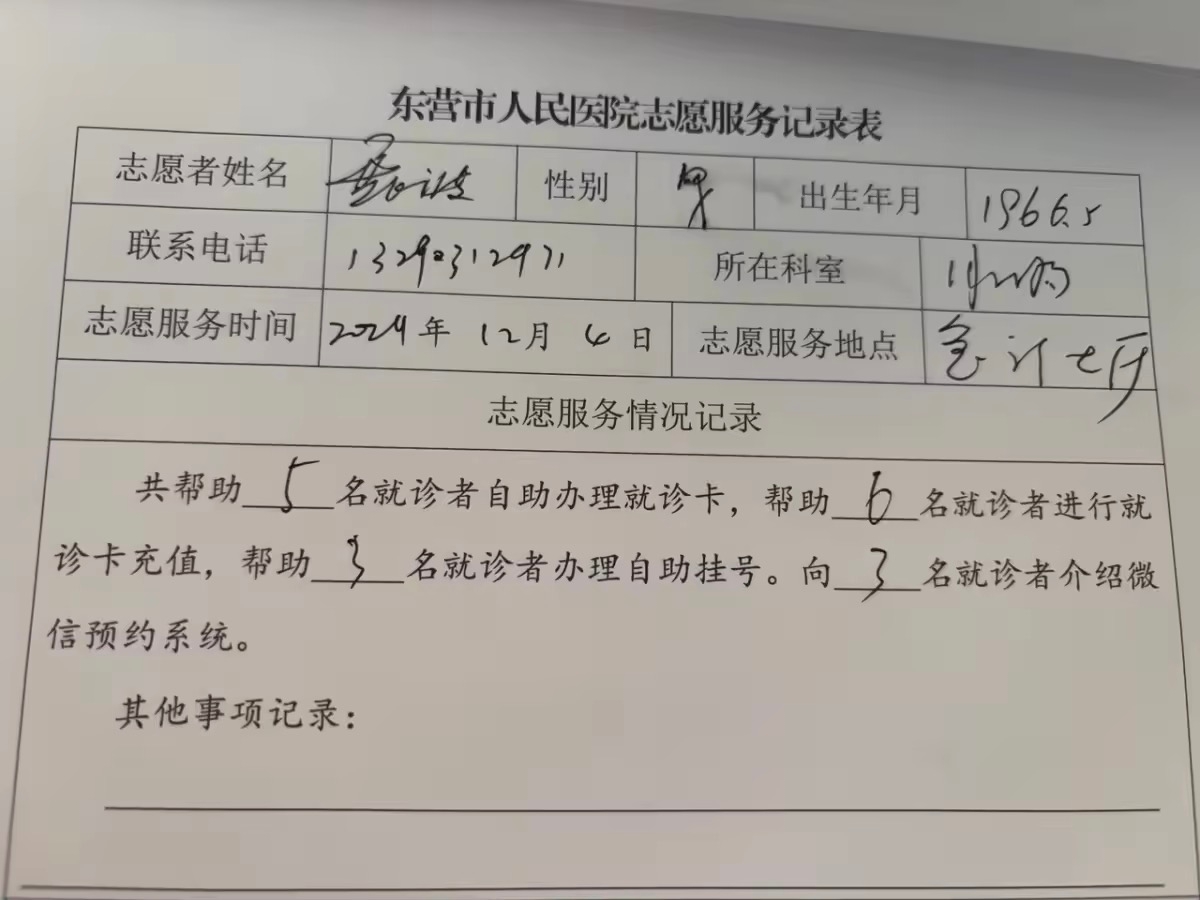 东营市人民医院志愿服务记录表
志愿者姓名 性别 男 出生年月 1966.5
联系电话 13290312971 所在科室
志愿服务时间 2024年 12月 6日 志愿服务地点
志愿服务情况记录
共帮助 5 名就诊者自助办理就诊卡，帮助 6 名就诊者进行就
诊卡充值，帮助 3 名就诊者办理自助挂号。向 3 名就诊者介绍微
信预约系统。
其他事项记录：